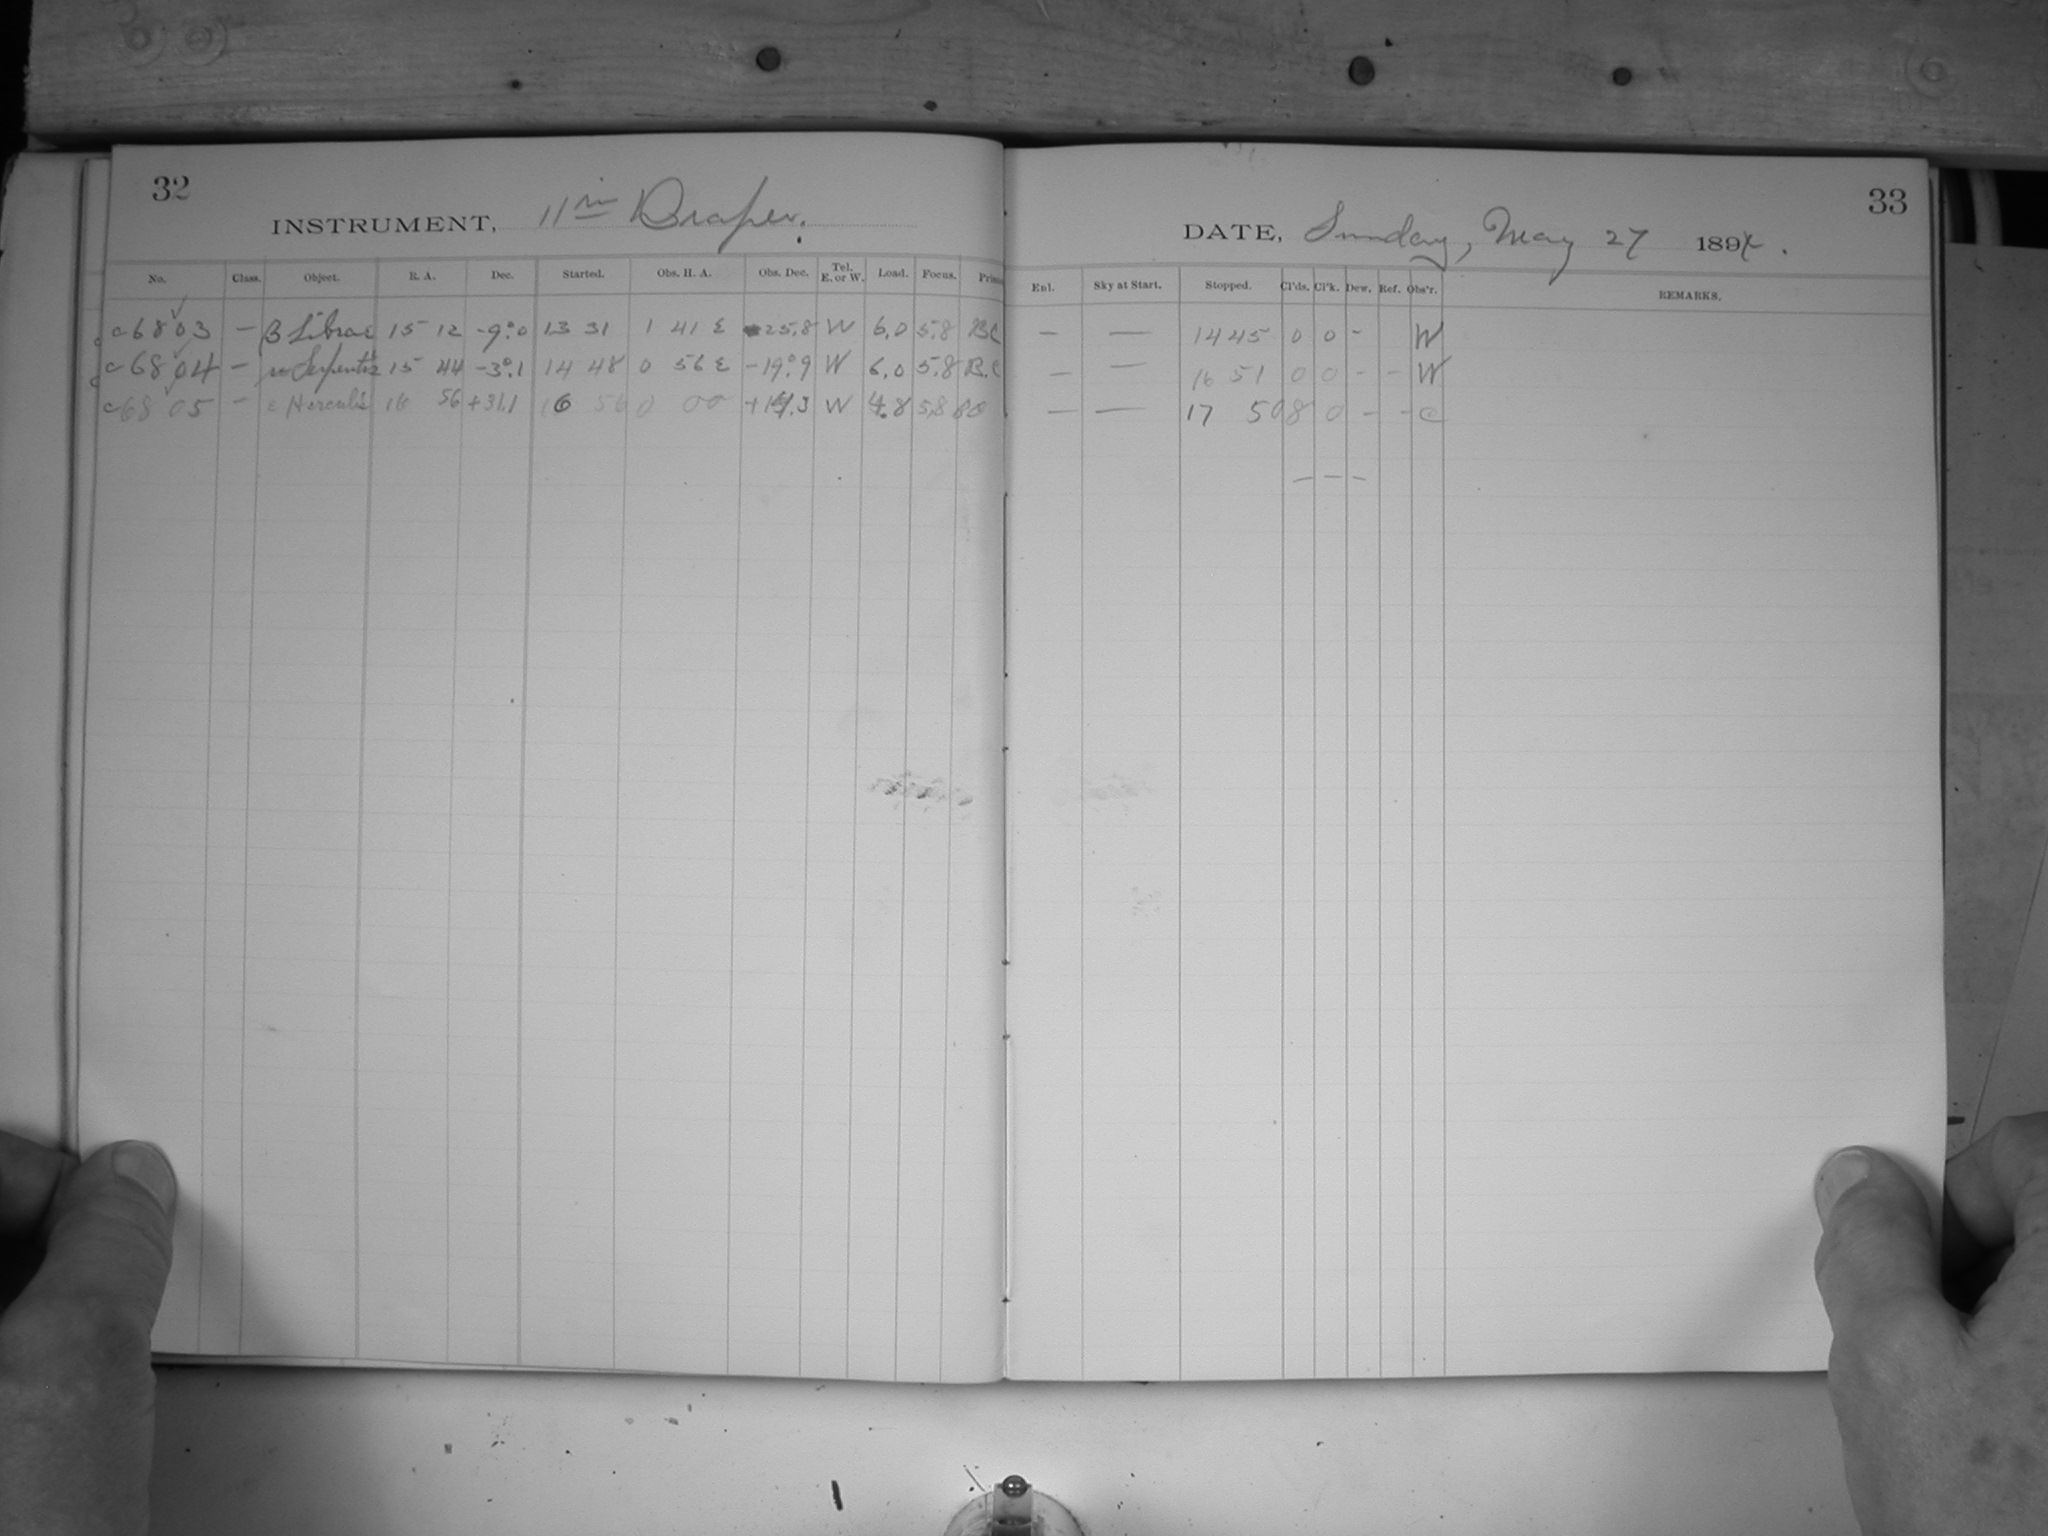 32
INSTRUMENT, 11 in Draper.
No. Class. Object. R. A. Dec. Started. Obs. H. A. Obs. Dec. Tel. E. or W. Load. Focus. Pris
c6803 — β Librae 15 12 -9°.0 13 31 1 41 E 25.8 W 6.0 5.8 BC
c6804 — Serpentis 15 44 -3°.1 14 48 0 56 E -19°.9 W 6.0 5.8 B.C
c6805 — ε Herculis 16 56 +31.1 16 56 0 00 W 4.8 5.8
33
DATE, Sunday, May 27 1894.
Enl. Sky at Start. Stopped. Cl'ds. Cl'k. Dew. Ref. Obs'r. REMARKS.
— — 14 45 0 0 - W
— — 16 51 0 0 - - W
— — 17 50 8 0 - - C
— — —